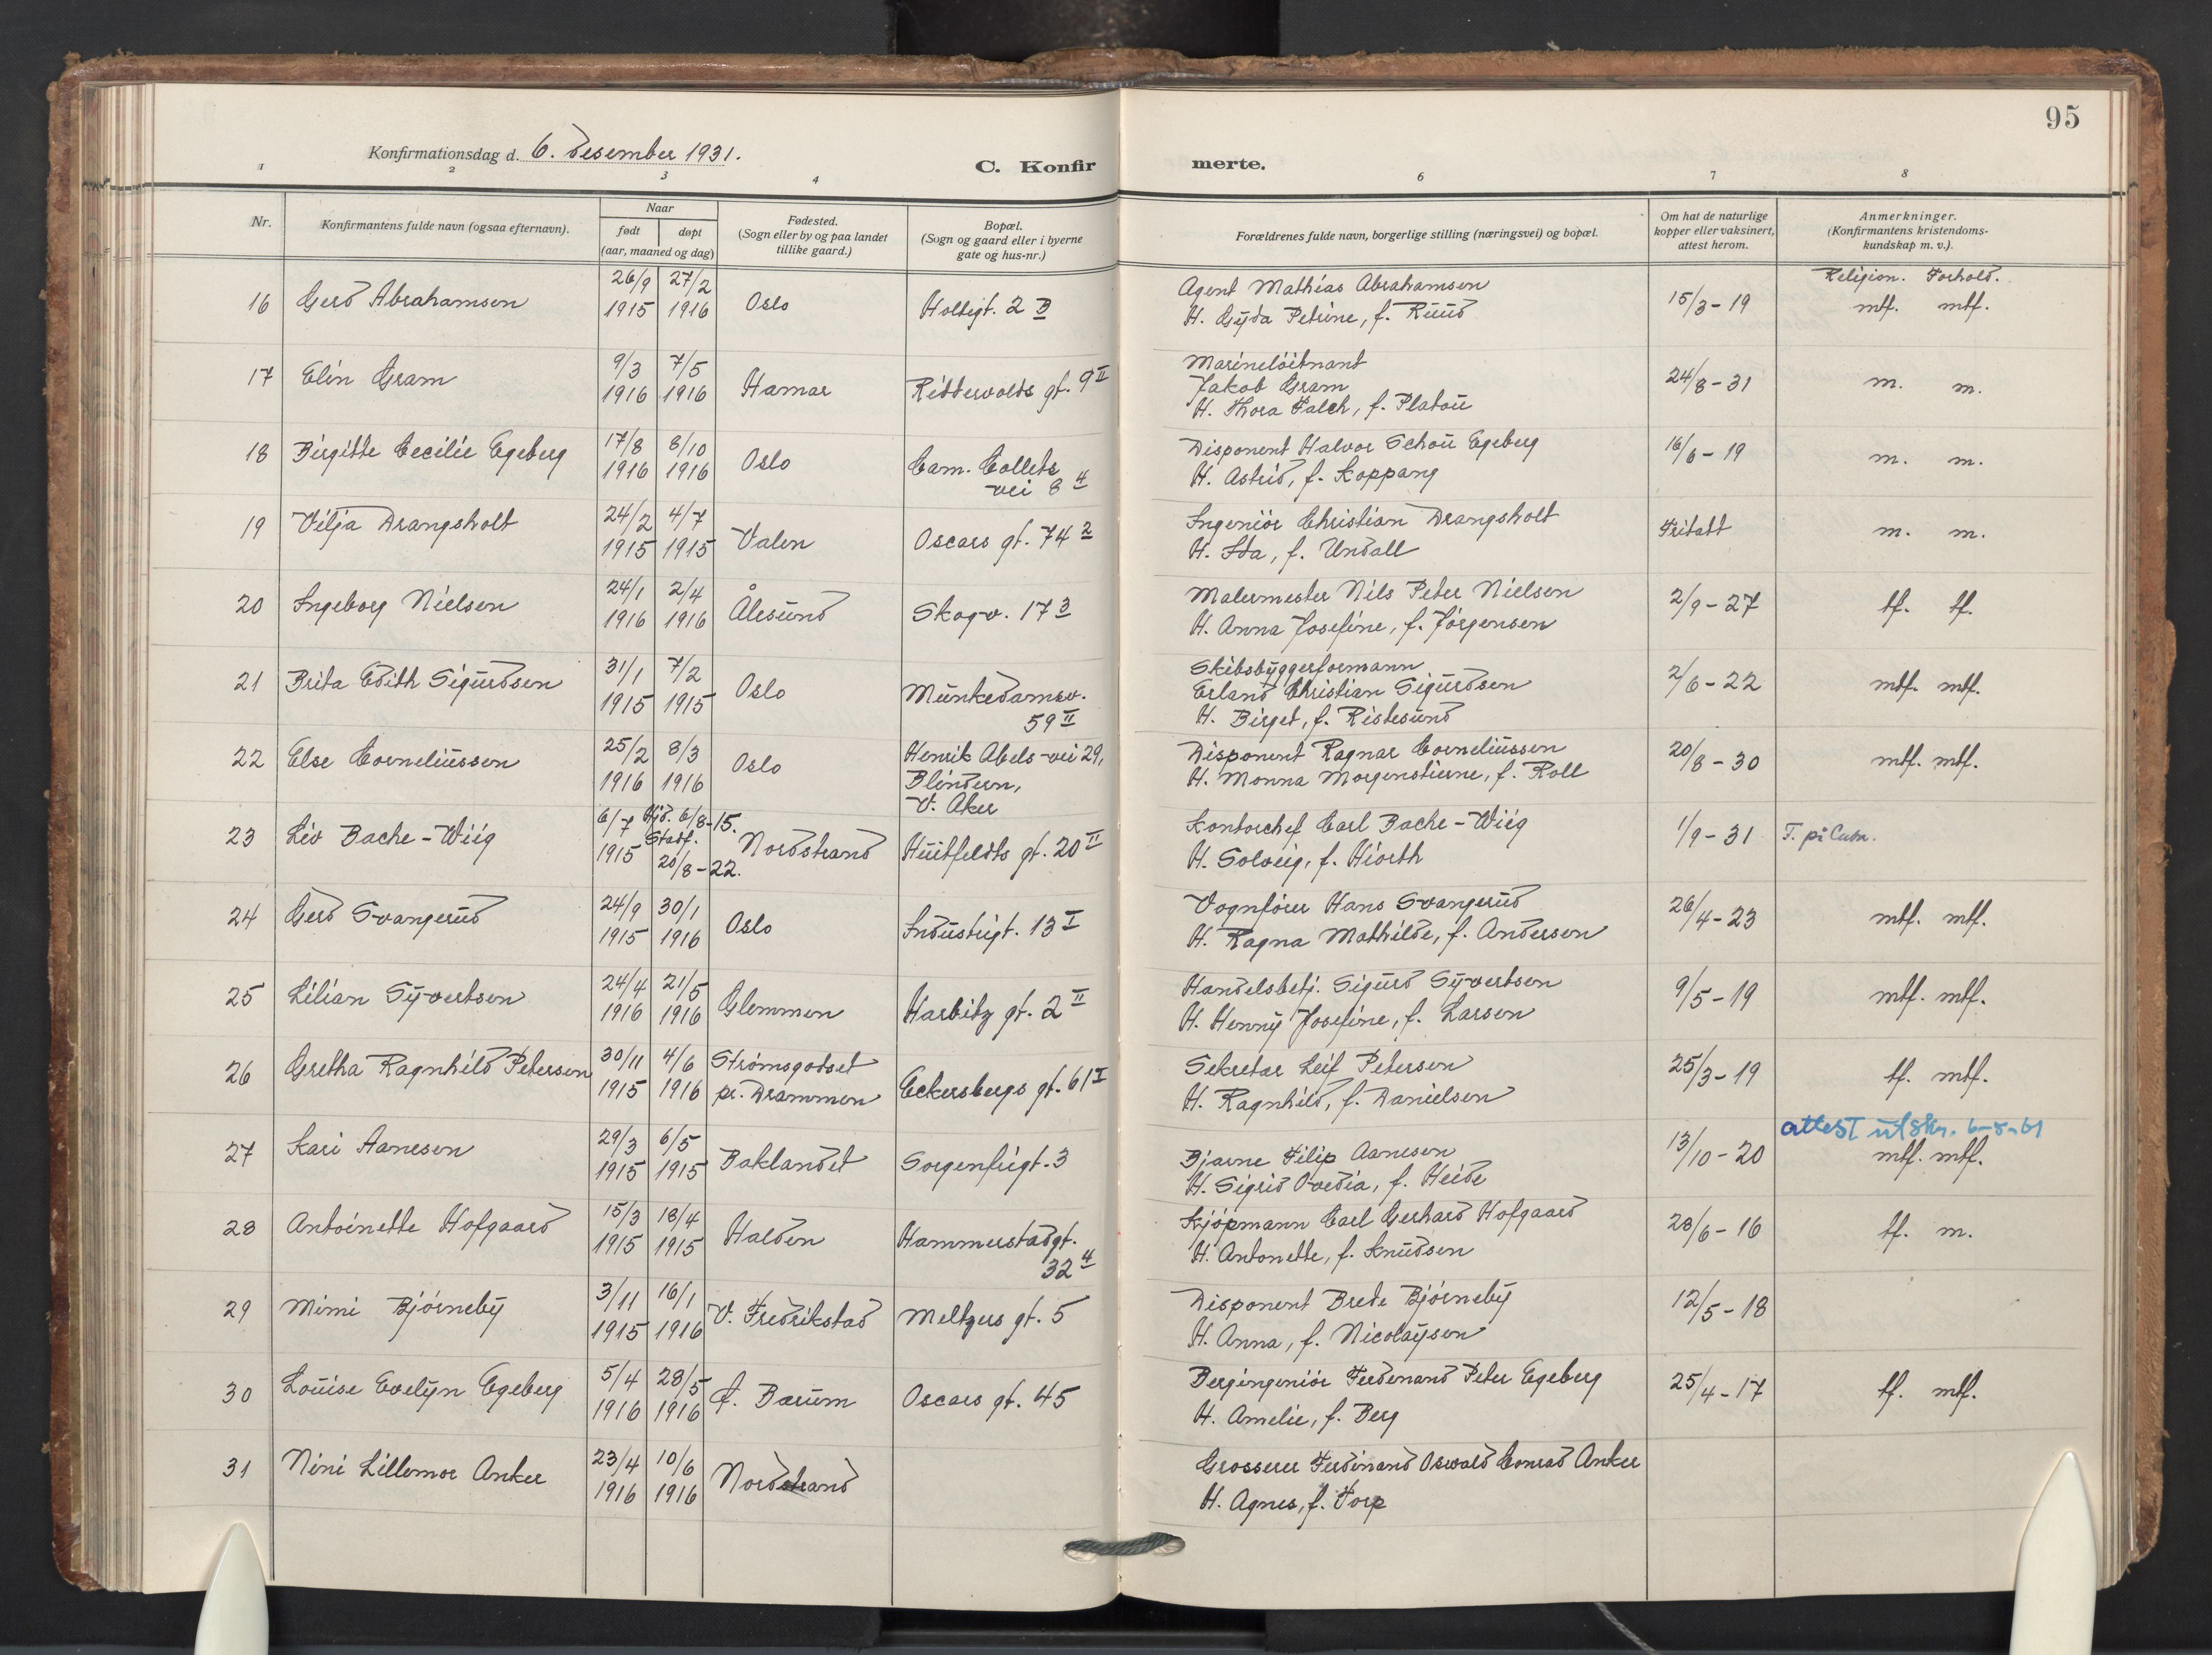 95
Konfirmationsdag d. 6. desember 1931.
C. Konfirmerte.
1 2 3 4 6 7 8
Nr.
Konfirmantens fulde navn (ogsaa efternavn).
Naar
født døpt
(aar, maaned og dag)
Fødested.
(Sogn eller by og paa landet
tillike gaard.)
Bopæl.
(Sogn og gaard eller i byerne
gate og hus-nr.)
Forældrenes fulde navn, borgerlige stilling (næringsvei) og bopæl.
Om hat de naturlige
kopper eller vaksinert,
attest herom.
Anmerkninger.
(Konfirmantens kristendoms-
kundskap m. v.).
Religion. Forhold.
26/9 27/2 Agent Mathias Abrahamsen
16 Gerd Abrahamsen 1915 1916 Oslo Holtegt. 2 B H. Gyda Petrine, f. Ruud 15/3-19 mtf. mtf.
9/3 7/5 Marineløitnant
17 Elin Gram 1916 1916 Hamar Riddervolds gt. 9 II Jakob Gram 24/8-31 m. m.
H. Thora Falch, f. Platou
17/8 8/10 Disponent Halvor Schou Egeberg
18 Birgitte Cecilie Egeberg 1916 1916 Oslo Cam. Colletts H. Astrid, f. Koppang 16/6-19 m. m.
vei 8 4
24/2 4/7 Ingeniør Christian Drangsholt
19 Vilja Drangsholt 1915 1915 Valen Oscars gt. 74 2 H. Ida, f. Undall Fritatt m. m.
24/1 2/4 Malermester Nils Peter Nielsen
20 Ingeborg Nielsen 1916 1916 Ålesund Skogv. 17 3 H. Anna Josefine, f. Jørgensen 2/9-27 tf. tf.
31/1 7/2 Skibsbyggerformann
21 Brita Edith Sigurdsen 1915 1915 Oslo Munkedamsv. Erland Christian Sigurdsen 2/6-22 mtf. mtf.
59 II H. Birget, f. Ristesund
25/2 8/3 Henrik Abels vei 29, Disponent Ragnar Corneliussen
22 Else Corneliussen 1916 1916 Oslo Blindern, H. Monna Morgenstierne, f. Roll 20/8-30 mtf. mtf.
V. Aker
6/7 Hjd. 6/8-15. Kontorchef Carl Bache-Wiig
23 Liv Bache-Wiig 1915 Stadf. 20/8-22. Nordstrand Huitfeldts gt. 20 II H. Solveig, f. Hiorth 1/9-31
24/9 30/1 Vognfører Hans Svangerud
24 Gerd Svangerud 1915 1916 Oslo Industrigt. 13 I H. Ragna Mathilde, f. Andersen 26/4-23 mtf. mtf.
24/4 21/5 Handelsbetj. Sigurd Syvertsen
25 Lilian Syvertsen 1916 1916 Glemmen Harbitz gt. 2 II H. Henny Josefine, f. Larsen 9/5-19 mtf. mtf.
30/11 4/6 Strømsgodset Sekretær Leif Petersen
26 Gretha Ragnhild Petersen 1915 1916 pr. Drammen Eckersbergs gt. 61 I H. Ragnhild, f. Danielsen 25/3-19 tf. mtf.
attest utskr. 6-5-61
29/3 6/5 Bjarne Filip Aanesen
27 Kari Aanesen 1915 1915 Baklandet Sorgenfrigt. 3 H. Sigrid Ovedia, f. Heide 13/10-20 mtf. mtf.
15/3 18/4 Kjøpmann Carl Gerhard Hofgaard
28 Antoinette Hofgaard 1915 1915 Halden Hammerstadgt. H. Antonette, f. Knudsen 28/6-16 tf. m.
32 4
3/11 16/1 Disponent Brede Bjørneby
29 Mimi Bjørneby 1915 1916 V. Fredrikstad Meltzers gt. 5 H. Anna, f. Nicolaysen 12/5-18
5/4 28/5 Bergingeniør Ferdenand Peter Egeberg
30 Louise Evelyn Egeberg 1916 1916 Bærum Oscars gt. 45 H. Amelie, f. Berg 25/4-17 tf. mtf.
23/4 10/6 Grosserer Ferdinand Oswald Conrad Anker
31 Nini Lillemor Anker 1916 1916 Nordstrand H. Agnes, f. Torp